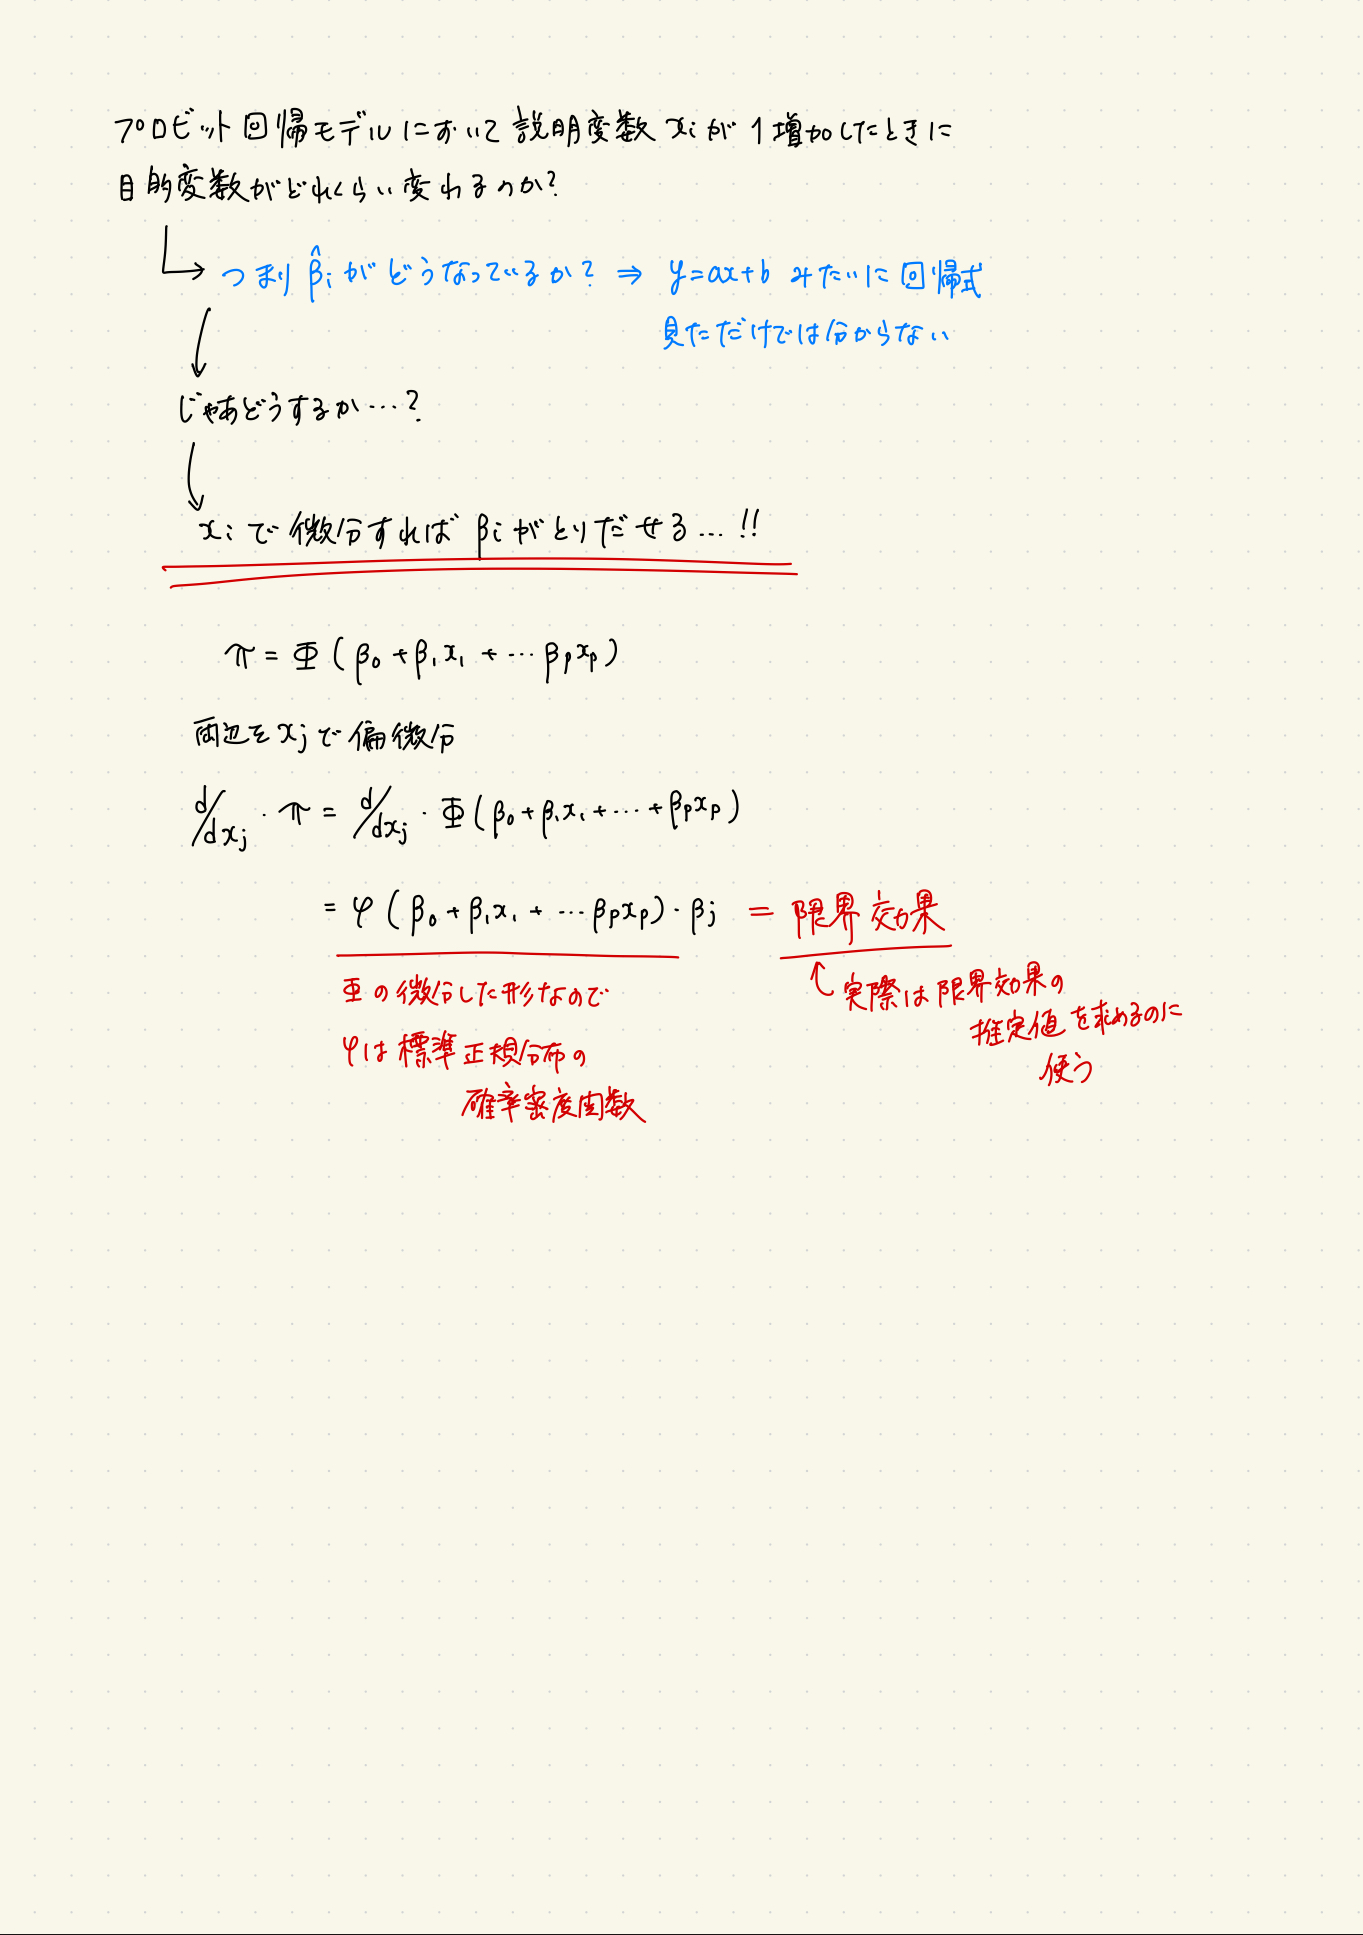 プロビット回帰モデルにおいて説明変数 xi が 1増加したときに
目的変数がどれくらい変わるのか?
つまり β̂i がどうなっているか? ⇒ y=ax+b みたいに回帰式
見ただけでは分からない
じゃあどうするか…?
xi で微分すれば βi がとりだせる…!!
π = Φ(β0+β1x1 + … βpxp)
両辺を xj で偏微分
d/dxj · π = d/dxj · Φ(β0+β1x1+…+βpxp)
= φ(β0+β1x1+ …βpxp)·βj = 限界効果
Φの微分した形なので
φは標準正規分布の
確率密度関数
実際は限界効果の
推定値を求めるのに
使う